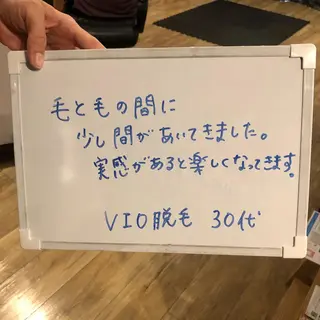 毛と毛の間に
少し間があいてきました。
実感があると楽しくなってきます。
VIO脱毛 30代